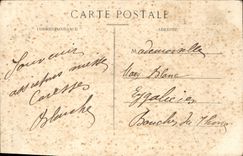 CARTE POSTALE
CORRESPONDANCE
ADRESSE
Souvenir
mille
Caresses
Blanche
Mademoiselle
Blanc
Eygalières
Bouches du Rhône